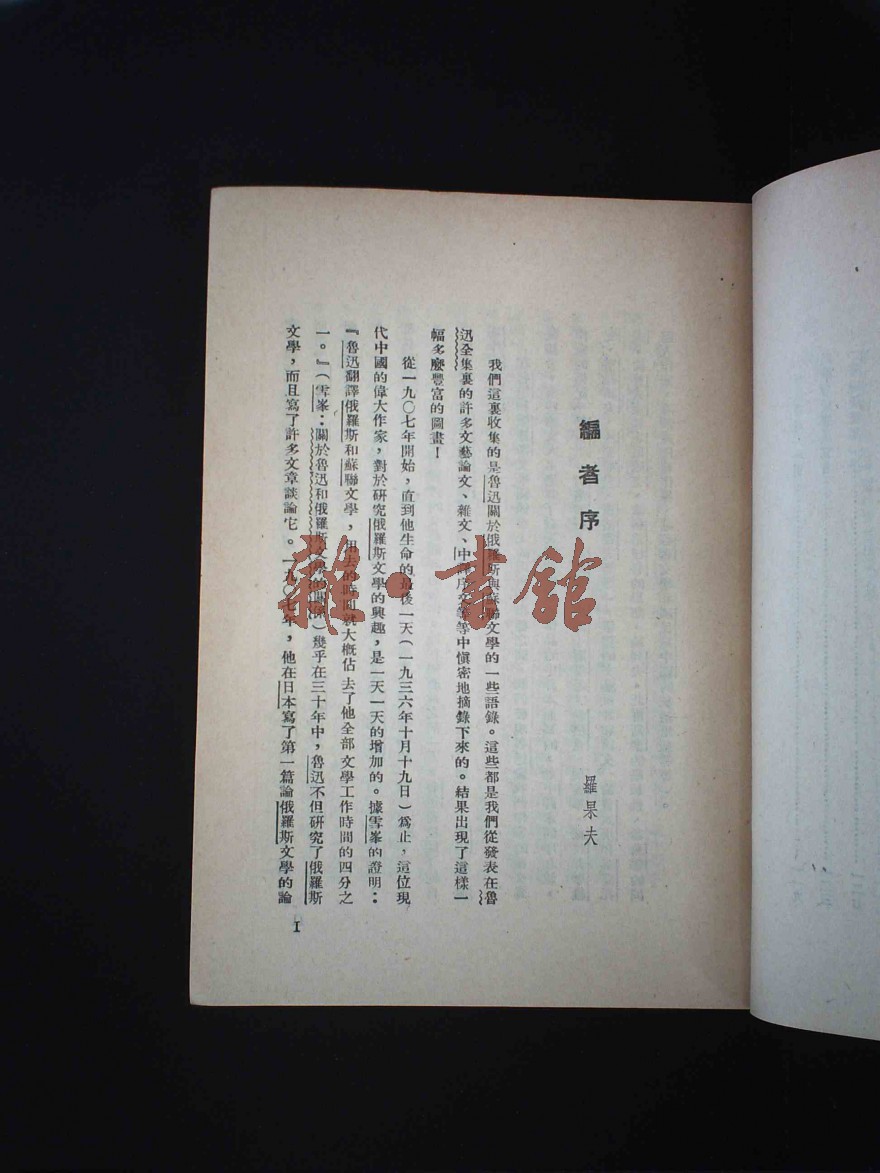 編者序
羅果夫
我們這裏收集的是魯迅關於俄羅斯與蘇聯文學的一些語錄。這些都是我們從發表在魯
迅全集裏的許多文藝論文、雜文、中序文等等中愼密地摘錄下來的。結果出現了這樣一
幅多麼豐富的圖畫！
從一九〇七年開始，直到他生命的最後一天（一九三六年十月十九日）爲止，這位現
代中國的偉大作家，對於研究俄羅斯文學的興趣，是一天一天的增加的。據雪峯的證明：
『魯迅翻譯俄羅斯和蘇聯文學，用去的時間就大概佔去了他全部文學工作時間的四分之
一。』（雪峯：關於魯迅和俄羅斯文學的關係）幾乎在三十年中，魯迅不但研究了俄羅斯
文學，而且寫了許多文章談論它。一九〇七年，他在日本寫了第一篇論俄羅斯文學的論
I
雜·書館